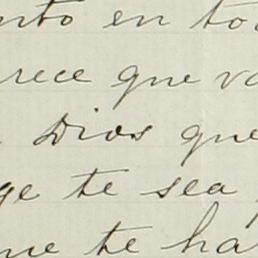 nto en to
rece que va
Dios que
ge te sea
me te ha